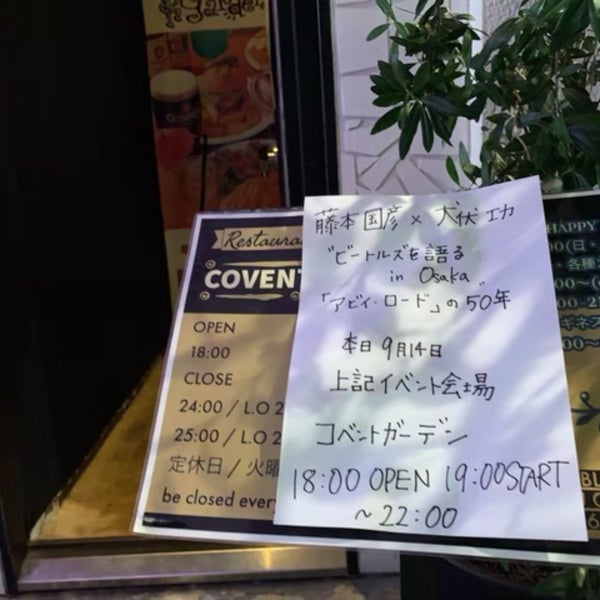 Garden
GUINNESS
Restaura
COVENT
OPEN
18:00
CLOSE
24:00 / L.O 2
25:00 / L.O 2
定休日 / 火曜
be closed every
藤本国彦 × 犬伏功
"ビートルズを語る
in Osaka"
「アビイ・ロード」の50年
本日 9月14日
上記イベント会場
コベントガーデン
18:00 OPEN 19:00 START
~22:00
HAPPY
ギネス